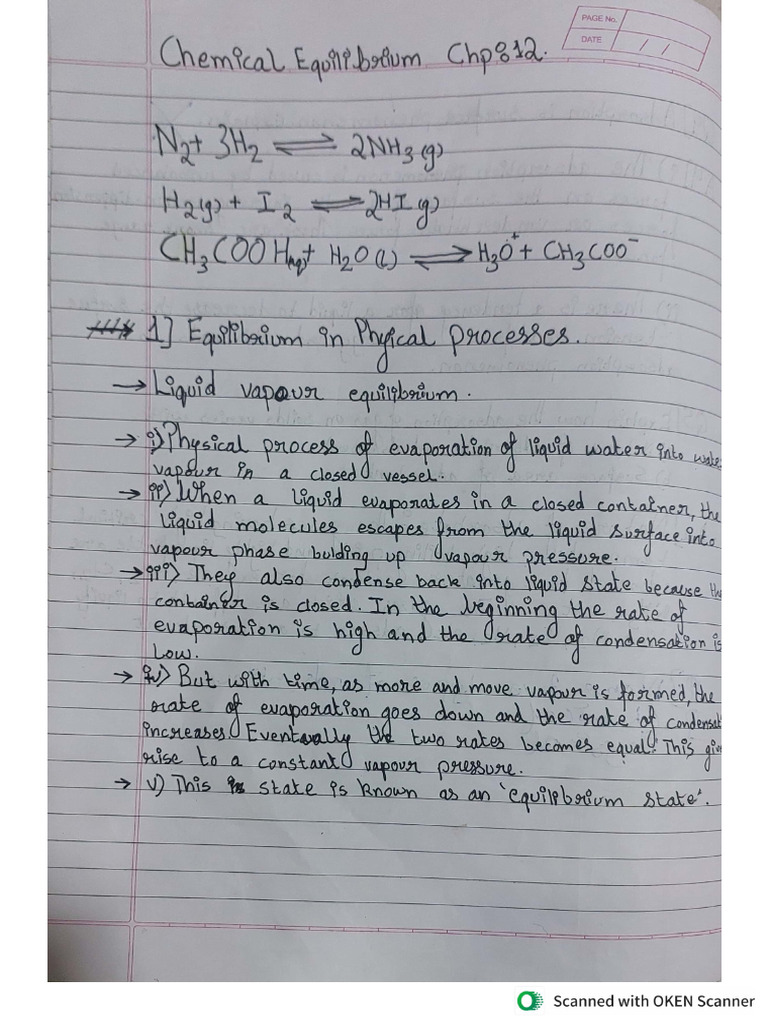 PAGE No.
DATE / /
Chemical Equilibrium Chp:12.
N2 + 3H2 ⇌ 2NH3(g)
H2(g) + I2 ⇌ 2HI(g)
CH3COOH(aq) + H2O(l) ⇌ H3O+ + CH3COO-
1] Equilibrium in Phyical processes.
→ Liquid vapour equilibrium.
→ i) Physical process of evaporation of liquid water into wate
vapour in a closed vessel.
→ ii) When a liquid evaporates in a closed container, the
liquid molecules escapes from the liquid surface into
vapour phase bulding up vapour pressure.
→ iii) They also condense back into liquid state because the
container is closed. In the beginning the rate of
evaporation is high and the rate of condensation is
low.
→ iv) But with time, as more and move vapour is formed, the
rate of evaporation goes down and the rate of condensat
increases. Eventually the two rates becomes equal. This giv
rise to a constant vapour pressure.
→ v) This state is known as an 'equilibrium state'.
Scanned with OKEN Scanner